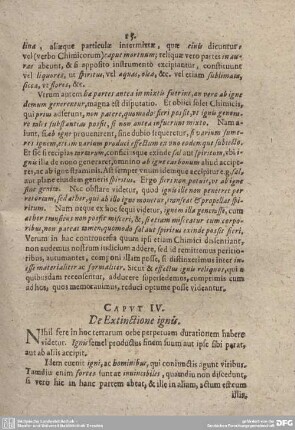 15.
lina, aliæque particulæ intermixtæ, quæ cinis dicuntur
vel (verbo Chimicorum) caput mortuum; reliquæ vero partes in au-
ras abeunt, & si apposito instrumento excipiantur, constituunt
vel liquores, ut spiritus, vel aquas, olea, &c. vel etiam sublimata,
sicca, ut flores, &c.
Verum autem hæ partes antea in mixto fuerint, an vero ab igne
demum generentur, magna est disputatio. Et obiici solet Chimicis,
qui prius asserunt, non patere, quomodo fieri possit, ut ignis genera-
re mille substantias possit, si non antea insuerunt mixto. Nam
lunt, si ab igne provenirent, sine dubio sequeretur, si varium sumeres
ignem, eti m varium product effectum ex uno eodemque subjecto.
Et sic si recipias
gnis illa de novo generaret, omnino ab igne carbonum aliud percipe-
res, ac ab igne straminis. Ast semper unum idemque accipitur e. g. sal,
aut plane ejusdem generis spiritus. Ergo fieri non potuit, ut ab igne
sint geniti. Nec obstare videtur, quod ignis ille non penetret per
retortam, sed æther, qui ab illo igne movetur, transeat & propellat spi-
ritum. Nam neque ex hoc sequi videtur, ignem illa genuisse, cum
æther tenuissimus non possit misceri, & si etiam misceatur cum corpo-
ribus, non pateat tamen, quomodo sal aut spiritus exinde possit fieri.
Verum in hac controversia quam ipsi etiam Chimici dissentiant,
non audemus nostrum judicium addere, sed id remittimus peritio-
ribus, autumantes, componi illam posse, si distinxerimus inter
esse materialiter ac formaliter. Sicut & effectus ignis reliquos, qui
quibusdam recensentur, adducere supersedemus, comprimis cum
ad hos, quos memoravimus, reduci optume posse videantur.
CAPUT IV.
De Extinctione ignis.
Nihil fere in hoc terrarum orbe perpetuam durationem habere
videtur. Ignis semel productus finem suum aut ipse sibi parat,
aut ab aliis accipit.
Idem contit igni, ac hominibus, qui conjunctis agunt viribus.
Tamdiu enim fortes sunt ac invincibiles, quamdiu non discedunt,
si vero hic in hanc partem abeat, & ille in aliam, actum est cum
illis,